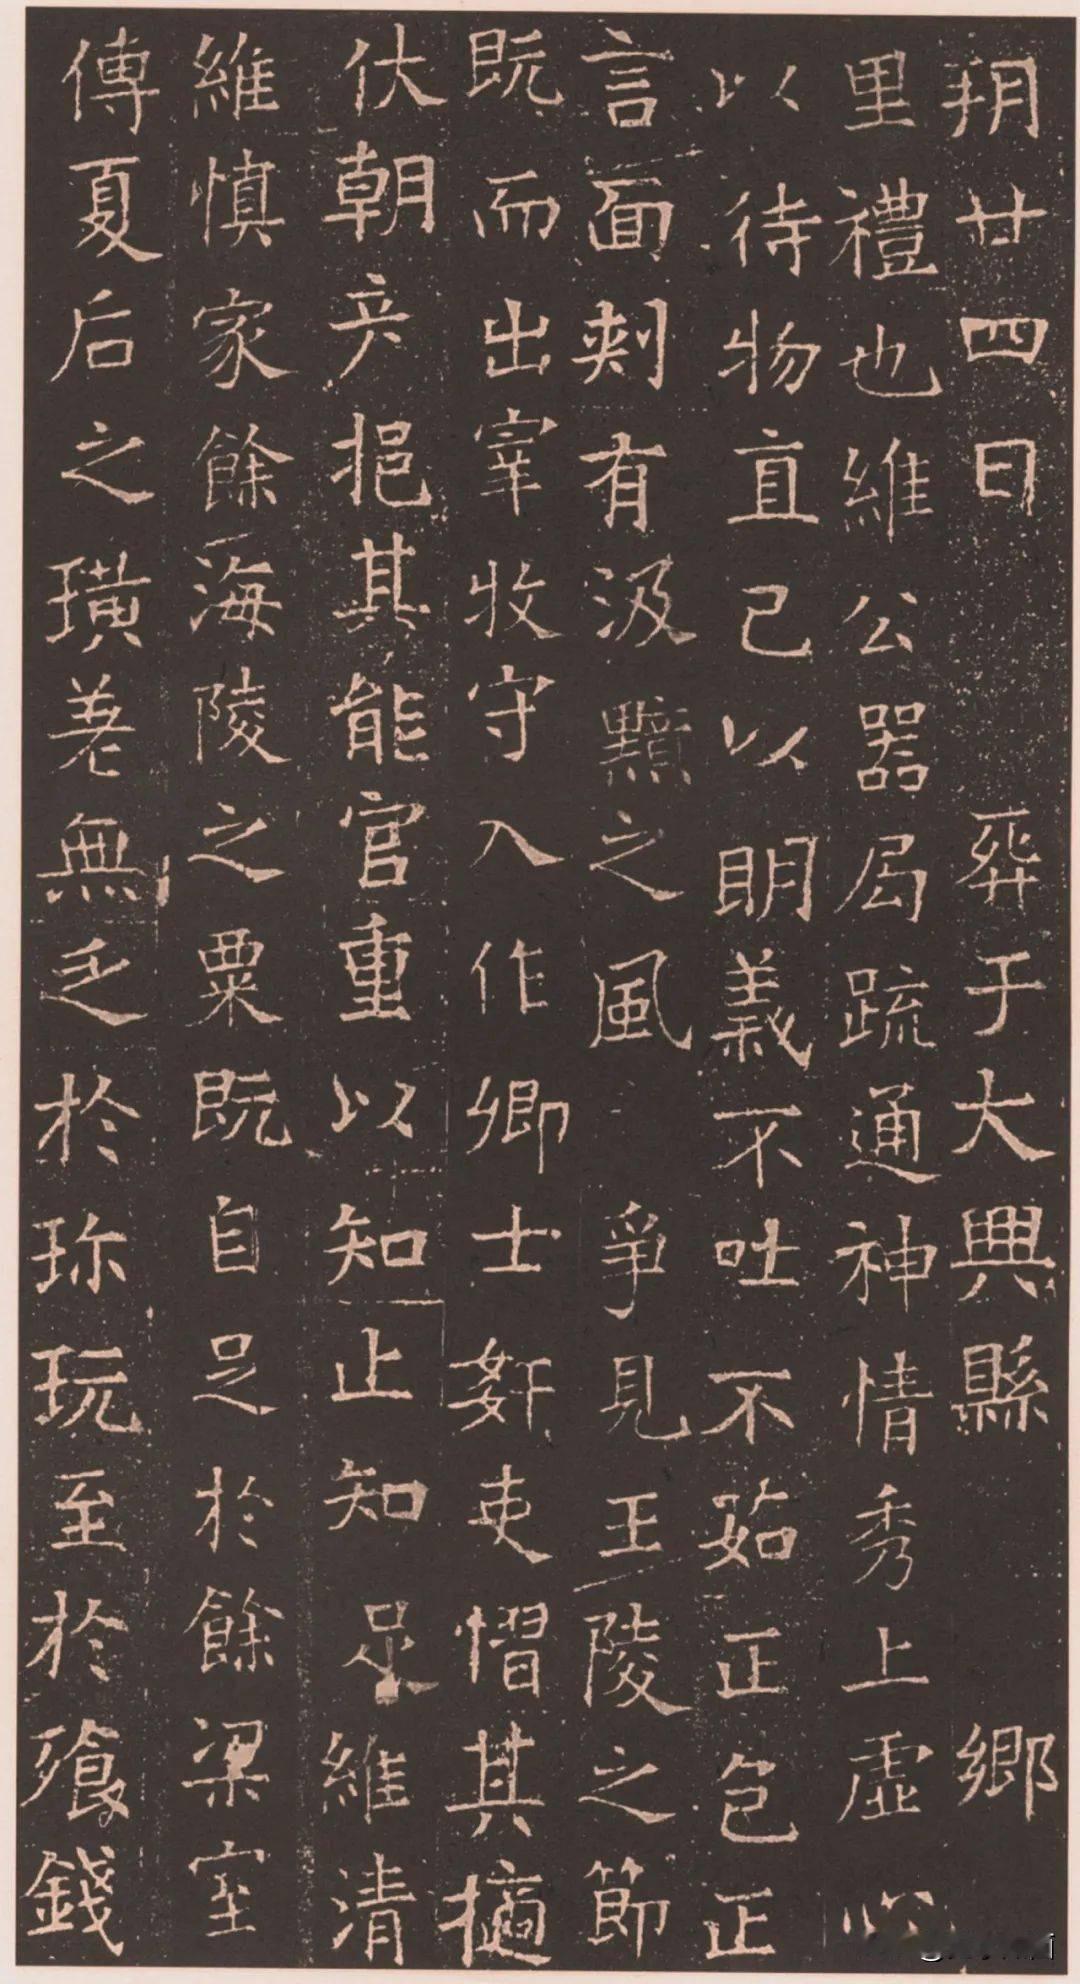 朔廿四日　葬于大興縣　鄉
里禮也維公器局疏通神情秀上虛心
以待物直己以明義不吐不茹正色正
言面刺有汲黯之風　爭見王陵之節
既而出宰牧守入作卿士奸吏慴其擿
伏朝彥挹其能官重以知止知足維清
維慎家餘海陵之粟既自足於餘粱室
傳夏后之璜差無乏於珎玩至於飡錢